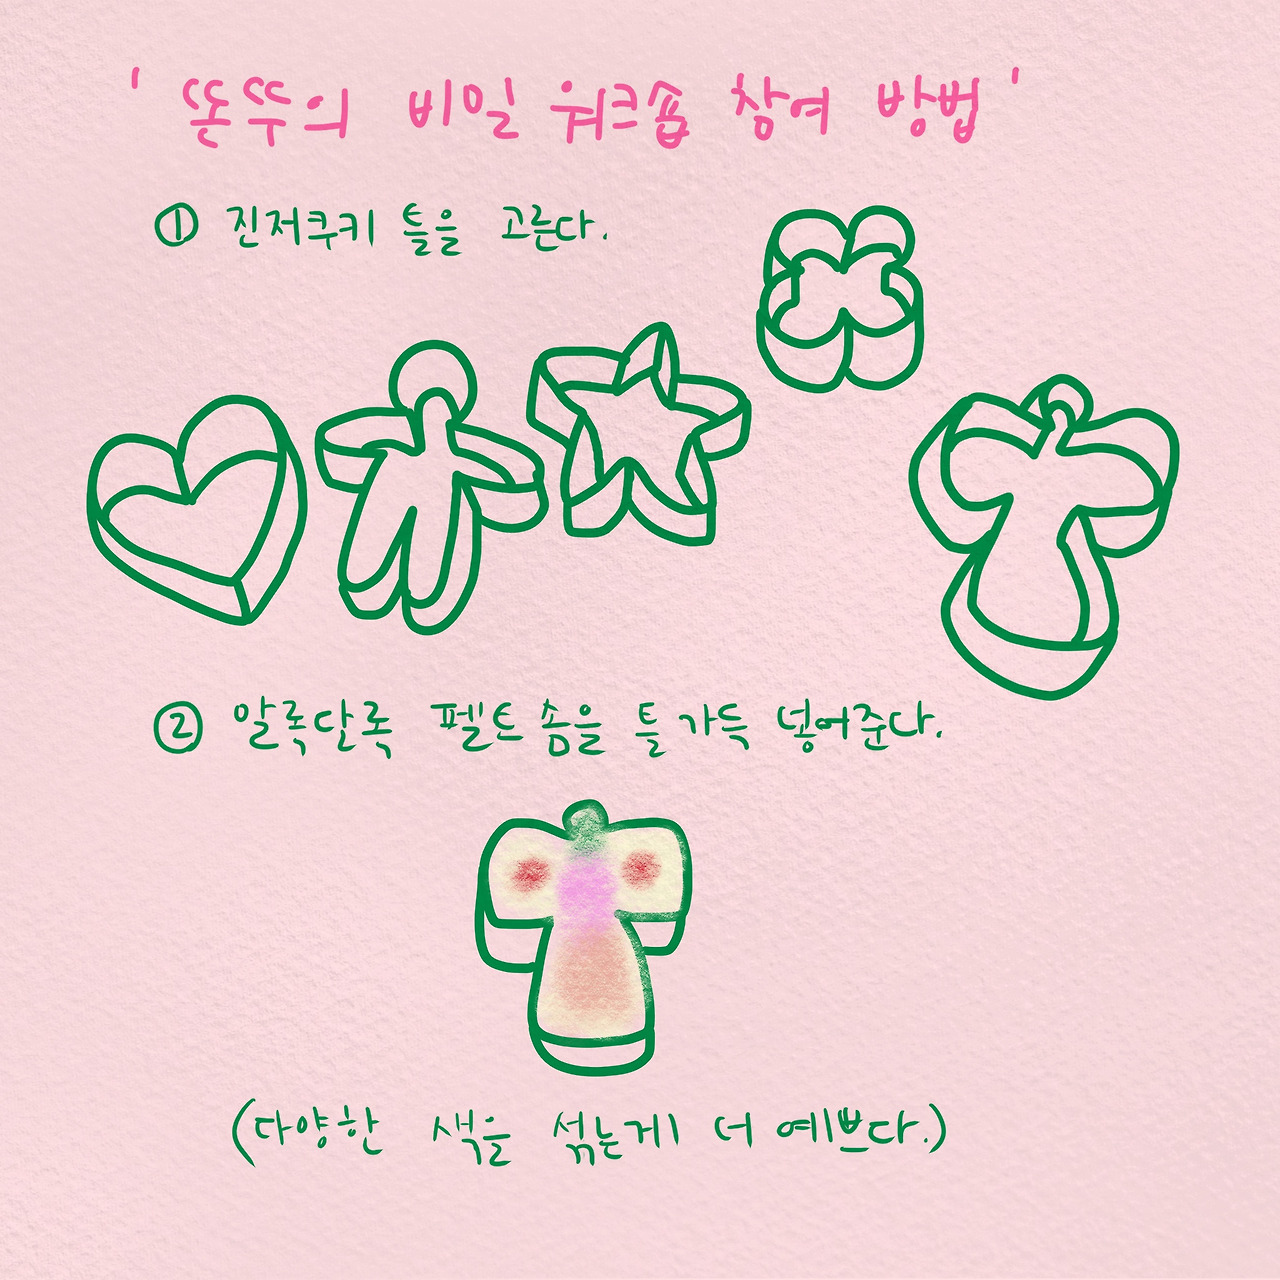 ' 똔뚜의 비밀 워크숍 참여 방법 '
① 진저쿠키 틀을 고른다.
② 알록달록 펠트 솜을 틀 가득 넣어준다.
(다양한 색을 섞는게 더 예쁘다.)